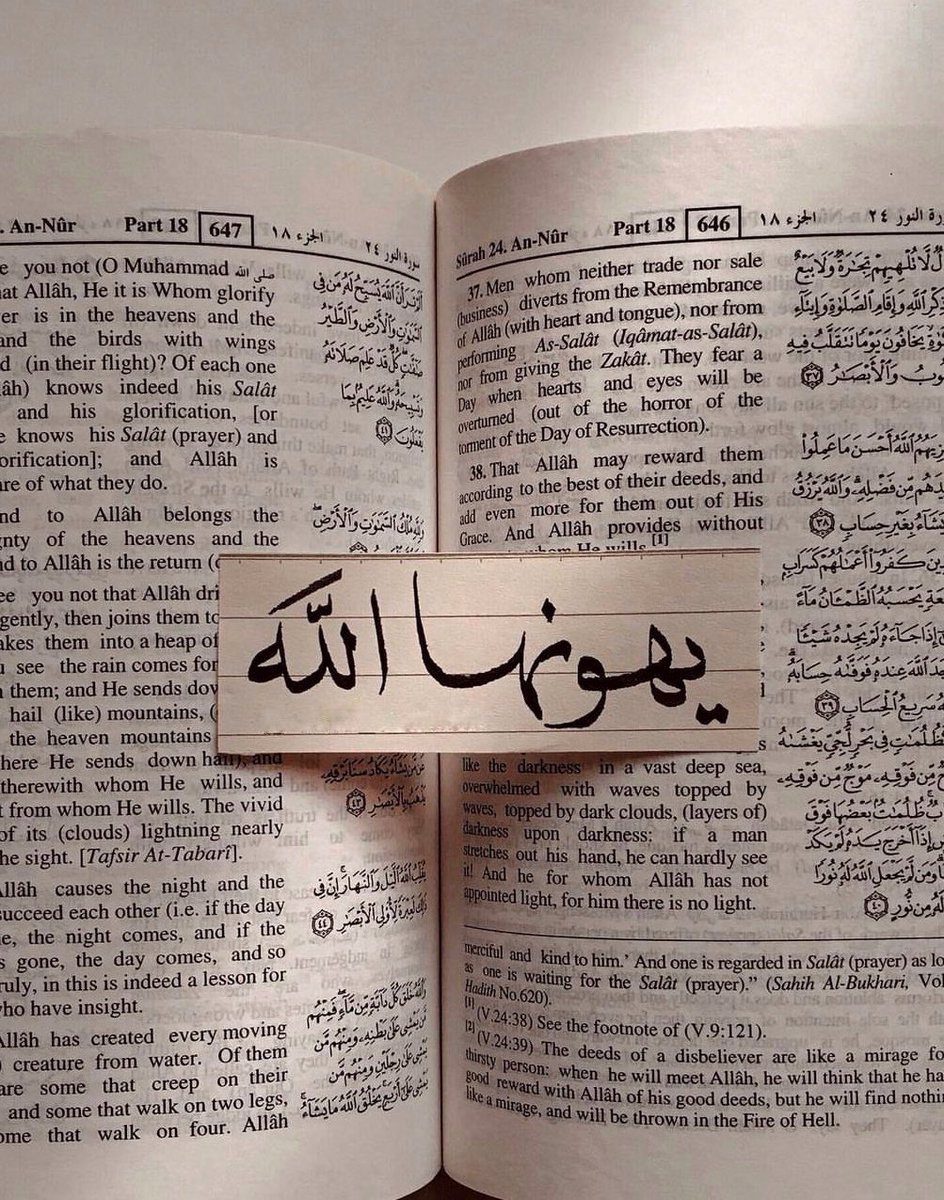 Sûrah 24. An-Nûr Part 18 646 الجزء ١٨ سورة النور ٢٤
37. Men whom neither trade nor sale
(business) diverts from the Remembrance
of Allâh (with heart and tongue), nor from
performing As-Salât (Iqâmat-as-Salât),
nor from giving the Zakât. They fear a
Day when hearts and eyes will be
overturned (out of the horror of the
torment of the Day of Resurrection).
38. That Allâh may reward them
according to the best of their deeds, and
add even more for them out of His
Grace. And Allâh provides without
whom He wills.[1]
like the darkness in a vast deep sea,
overwhelmed with waves topped by
waves, topped by dark clouds, (layers of)
darkness upon darkness: if a man
stretches out his hand, he can hardly see
it! And he for whom Allâh has not
appointed light, for him there is no light.
لَّا تُلْهِيهِمْ تِجَٰرَةٌ وَلَا بَيْعٌ
ذِكْرِ ٱللَّهِ وَإِقَامِ ٱلصَّلَوٰةِ وَإِيتَآءِ
يَخَافُونَ يَوْمًا تَتَقَلَّبُ فِيهِ
وَٱلْأَبْصَٰرُ ٣٧
ٱللَّهُ أَحْسَنَ مَا عَمِلُوا۟
مِّن فَضْلِهِۦ وَٱللَّهُ يَرْزُقُ
يَشَآءُ بِغَيْرِ حِسَابٍ ٣٨
كَفَرُوٓا۟ أَعْمَٰلُهُمْ كَسَرَابٍۭ
يَحْسَبُهُ ٱلظَّمْـَٔانُ مَآءً
إِذَا جَآءَهُۥ لَمْ يَجِدْهُ شَيْـًٔا
ٱللَّهَ عِندَهُۥ فَوَفَّىٰهُ حِسَابَهُۥ
سَرِيعُ ٱلْحِسَابِ ٣٩
كَظُلُمَٰتٍ فِى بَحْرٍ لُّجِّىٍّ يَغْشَىٰهُ
مِّن فَوْقِهِۦ مَوْجٌ مِّن فَوْقِهِۦ
ظُلُمَٰتٌۢ بَعْضُهَا فَوْقَ
إِذَآ أَخْرَجَ يَدَهُۥ لَمْ يَكَدْ
وَمَن لَّمْ يَجْعَلِ ٱللَّهُ لَهُۥ نُورًا
مِن نُّورٍ ٤٠
merciful and kind to him.' And one is regarded in Salât (prayer) as
as one is waiting for the Salât (prayer)." (Sahih Al-Bukhari,
Hadith No.620).
[1] (V.24:38) See the footnote of (V.9:121).
[2] (V.24:39) The deeds of a disbeliever are like a mirage
thirsty person: when he will meet Allâh, he will think that he
good reward with Allâh of his good deeds, but he will find
like a mirage, and will be thrown in the Fire of Hell.
يهونها اللّٰه
An-Nûr Part 18 647 الجزء ١٨ سورة النور ٢٤
you not (O Muhammad صلى الله
Allâh, He it is Whom glorify
is in the heavens and the
and the birds with wings
(in their flight)? Of each one
knows indeed his Salât
and his glorification, [or
knows his Salât (prayer) and
and Allâh is
of what they do.
to Allâh belongs the
of the heavens and the
to Allâh is the return
you not that Allâh
gently, then joins them
them into a heap of
see the rain comes
them; and He sends
hail (like) mountains,
the heaven mountains
He sends down hail), and
therewith whom He wills, and
from whom He wills. The vivid
of its (clouds) lightning nearly
the sight. [Tafsir At-Tabarî].
Allâh causes the night and the
succeed each other (i.e. if the day
the night comes, and if the
gone, the day comes, and so
truly, in this is indeed a lesson for
who have insight.
Allâh has created every moving
creature from water. Of them
are some that creep on their
and some that walk on two legs,
some that walk on four. Allâh
أَلَمْ تَرَ أَنَّ ٱللَّهَ يُسَبِّحُ لَهُۥ مَن فِى
ٱلسَّمَٰوَٰتِ وَٱلْأَرْضِ وَٱلطَّيْرُ
صَٰٓفَّٰتٍ كُلٌّ قَدْ عَلِمَ صَلَاتَهُۥ
وَتَسْبِيحَهُۥ وَٱللَّهُ عَلِيمٌۢ بِمَا
يَفْعَلُونَ ٤١
وَلِلَّهِ مُلْكُ ٱلسَّمَٰوَٰتِ وَٱلْأَرْضِ
عَن مَّن يَشَآءُ يَكَادُ سَنَا بَرْقِهِۦ
يَذْهَبُ بِٱلْأَبْصَٰرِ ٤٣
يُقَلِّبُ ٱللَّهُ ٱلَّيْلَ وَٱلنَّهَارَ إِنَّ فِى
ذَٰلِكَ لَعِبْرَةً لِّأُو۟لِى ٱلْأَبْصَٰرِ ٤٤
وَٱللَّهُ خَلَقَ كُلَّ دَآبَّةٍ مِّن مَّآءٍ فَمِنْهُم
مَّن يَمْشِى عَلَىٰ بَطْنِهِۦ وَمِنْهُم مَّن
يَمْشِى عَلَىٰ رِجْلَيْنِ وَمِنْهُم مَّن
يَمْشِى عَلَىٰٓ أَرْبَعٍ يَخْلُقُ ٱللَّهُ مَا يَشَآءُ